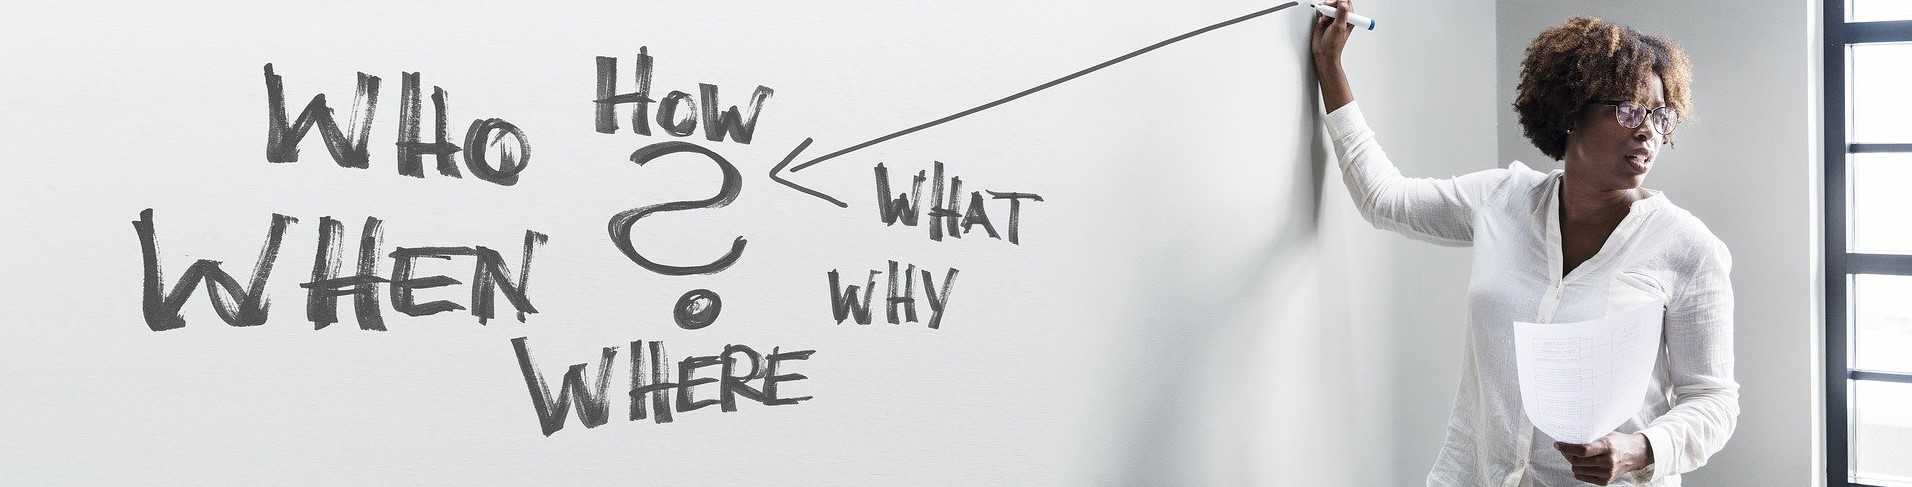 WHO
HOW
?
WHAT
WHEN
WHY
WHERE